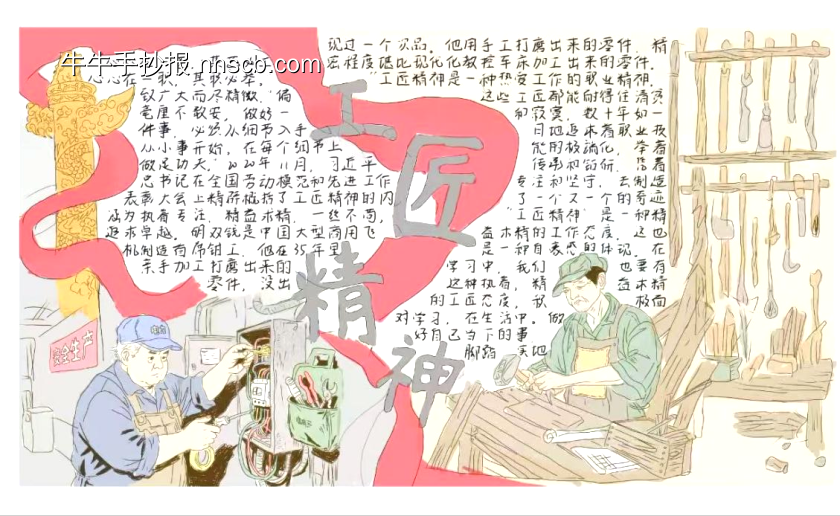 牛牛手抄报.nnscb.com
以广大而尽精微，偏
毫厘不敢安，做好一
件事，必须从细节入手
从小事开始，在每个细节上
做足功夫，2020年11月，习近平
总书记在全国劳动模范和先进工作
表彰大会上精辟概括了工匠精神的内
涵为执着专注，精益求精，一丝不苟，
追求卓越。胡双钱是中国大型商用飞
机制造商吊钳工，他在35年里
亲手加工打磨出来的
零件，没出
现过一个次品。他用手工打磨出来的零件，精
密程度堪比现代化数控车床加工出来的零件。
"工匠精神是一种热爱工作的职业精神，
这些工匠都能耐得住清贫
和寂寞，数十年如一
日地追求着职业技
能的极端化，靠着
传承和钻研，凭着
专注和坚守，去制造
了一个又一个的奇迹
"工匠精神"是一种精
益求精的工作态度，这也
是一种自我态的体现。在
学习中，我们也要有
这种执着，精益求精
的工匠态度，积极面
对学习，在生活中。做
好自己当下的事
脚踏实地
工
匠
精
神
安全生产